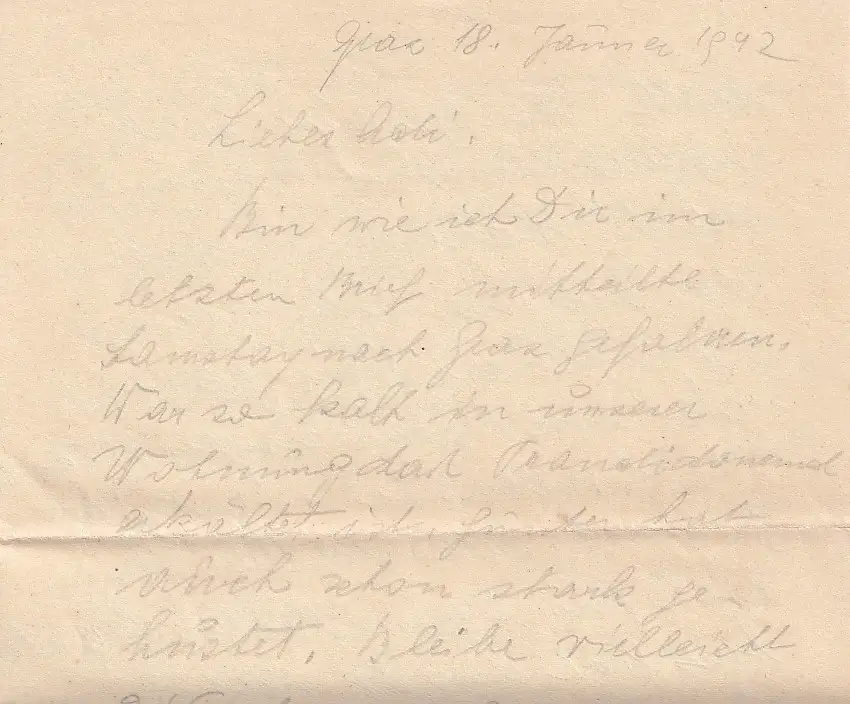 Graz 18. Jänner 1942
Lieber
Bin wie ich Dir im
letzten Brief mitteilte
Samstag nach Graz gefahren.
War so kalt in unserer
Wohnung daß
erkältet ist. Günter hat
auch schon stark ge-
hustet. Bleibe vielleicht